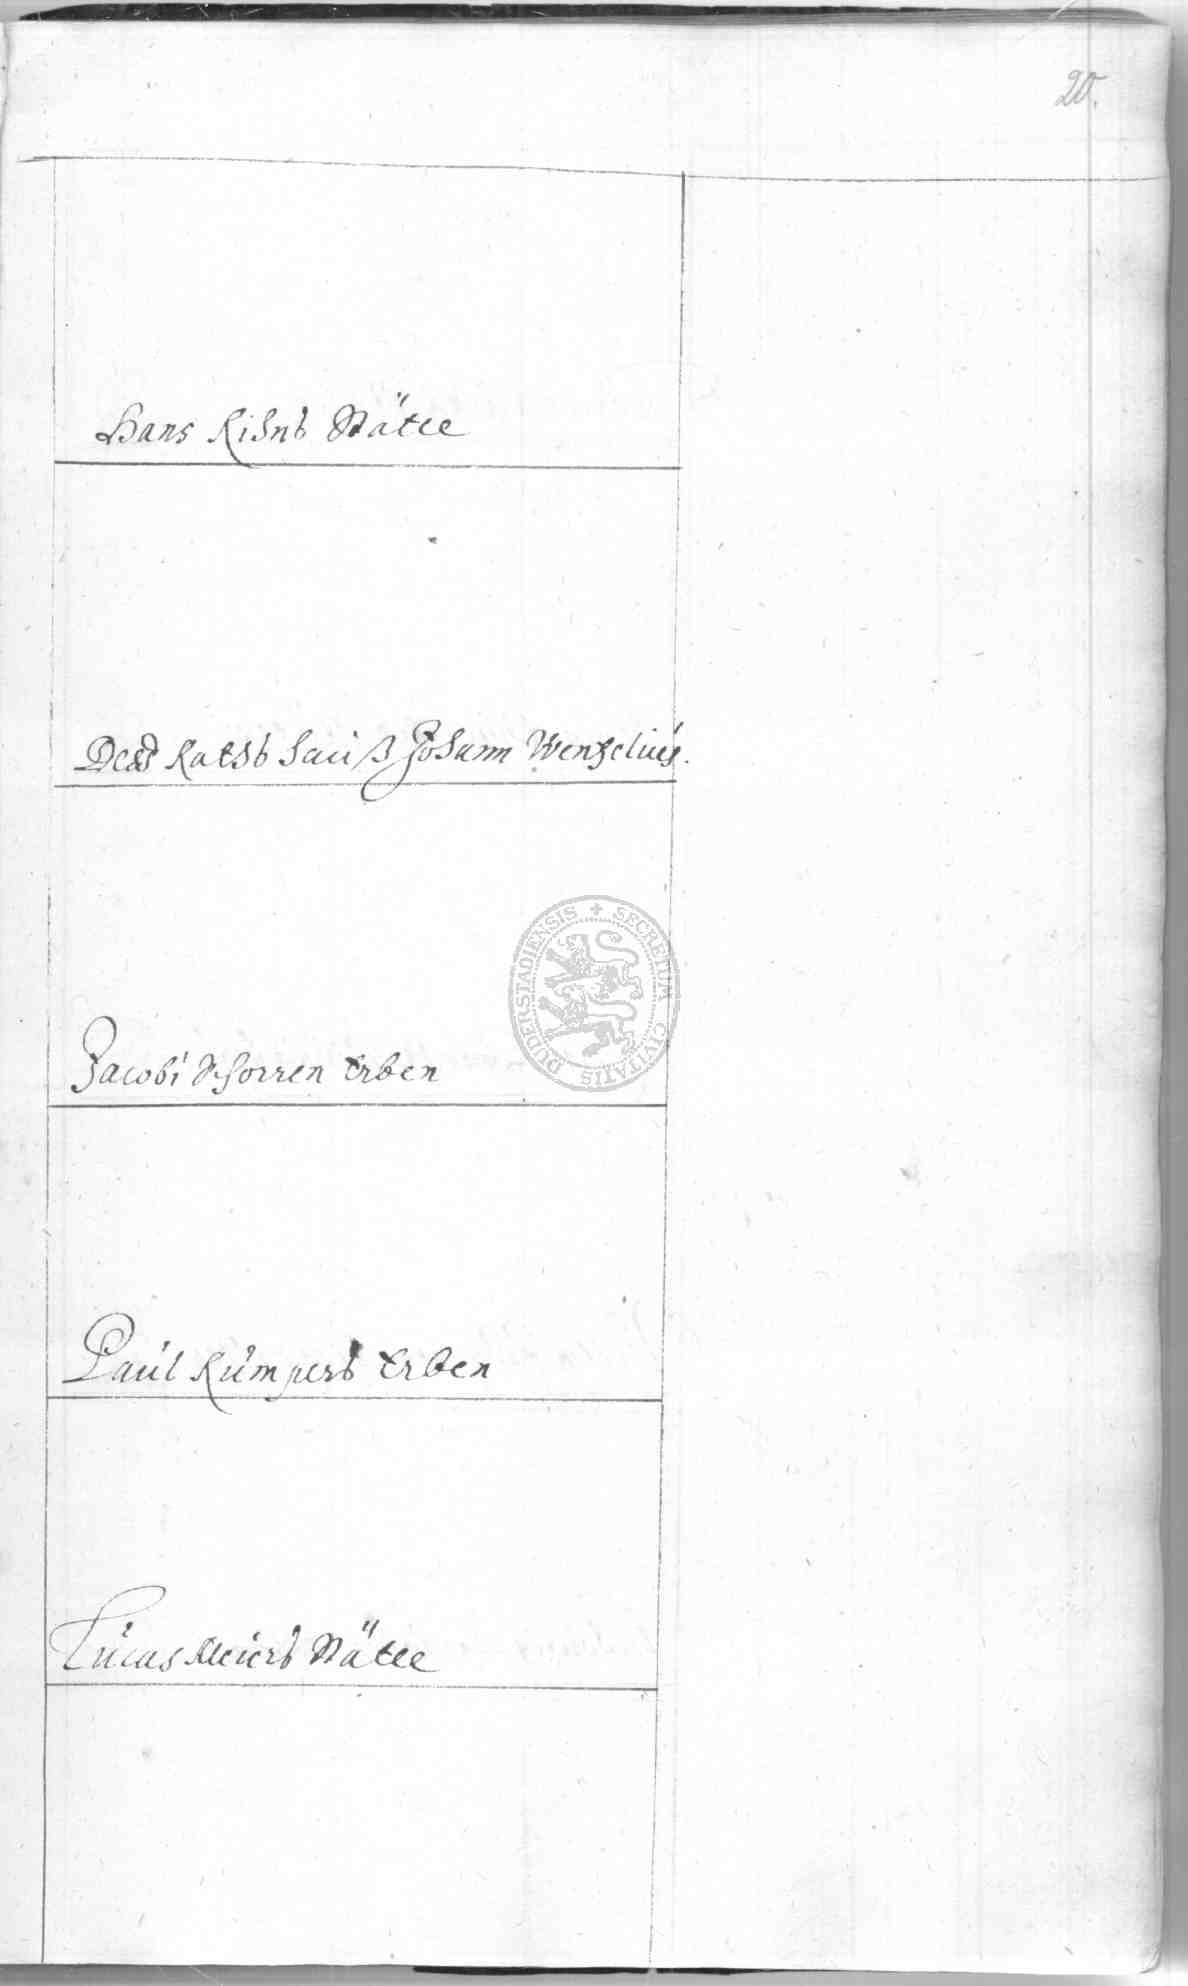 20.
Hans Kihns Stätte
Des Rahts hauß Johann Wentzelius.
Jacobi Schorren Erben
Paul Kumpers Erben
Lucas Meiers Stätte
SECRETUM CIVITATIS DUDERSTADIENSIS